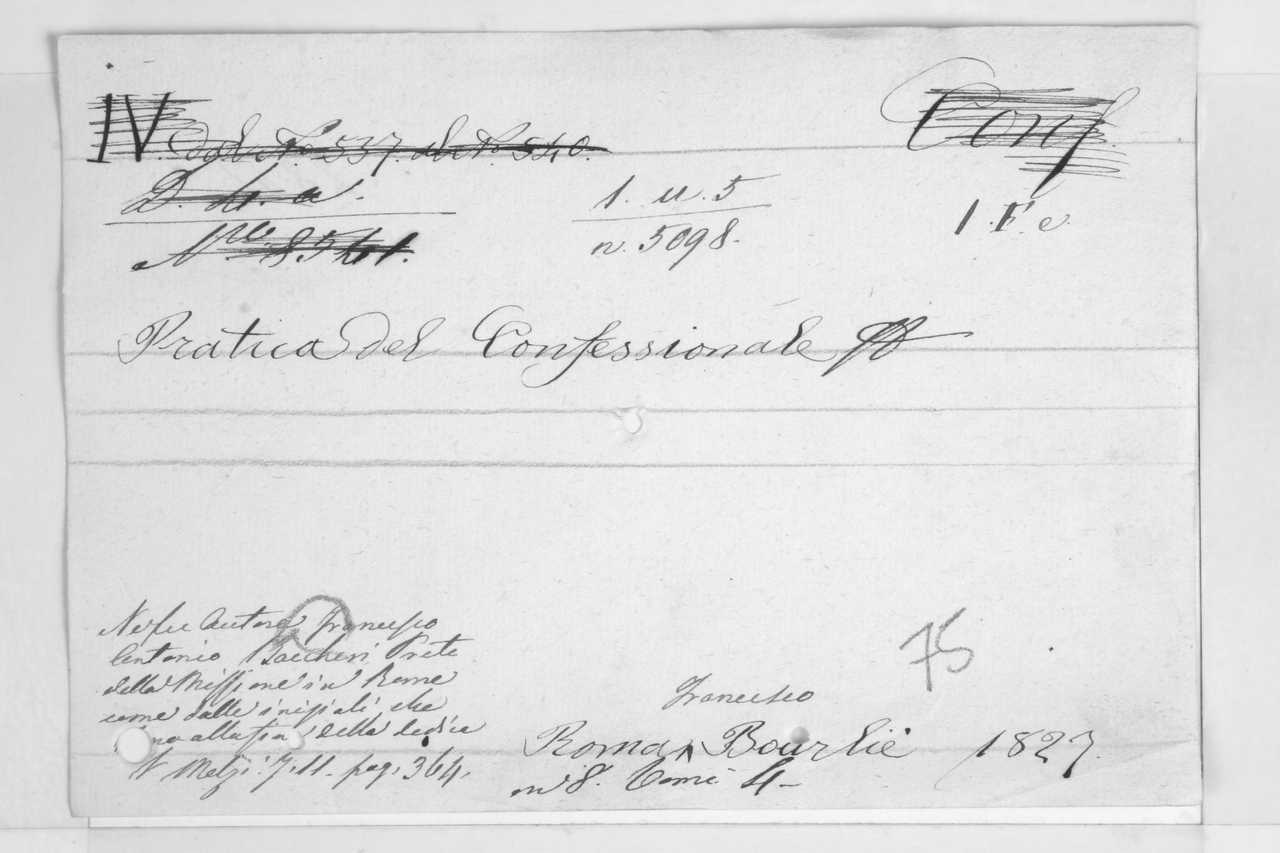 IV. dal N.° 537. al N. 540.
Conf.
D. 4. a.
1. u. 5
N. 8541.
n. 5098.
1. F. e
Pratica del Confessionale
Ne fu Autore Francesco
Antonio Baccheri Prete
della Missione in Rome
come dalle iniziali che
alla fin della dedica
V. Melzi. T. 11. pag. 364.
75
Francesco
Roma Bourlié 1827.
in 8. Tomi 4